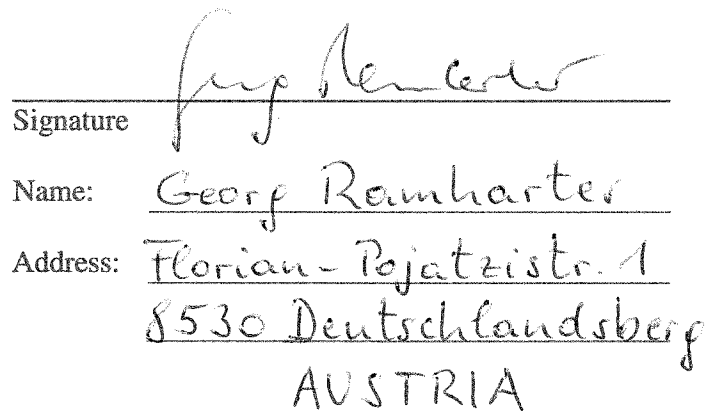 Georg Ramharter
Signature
Name: Georg Ramharter
Address: Florian-Pojatzistr. 1
8530 Deutschlandsberg
AUSTRIA